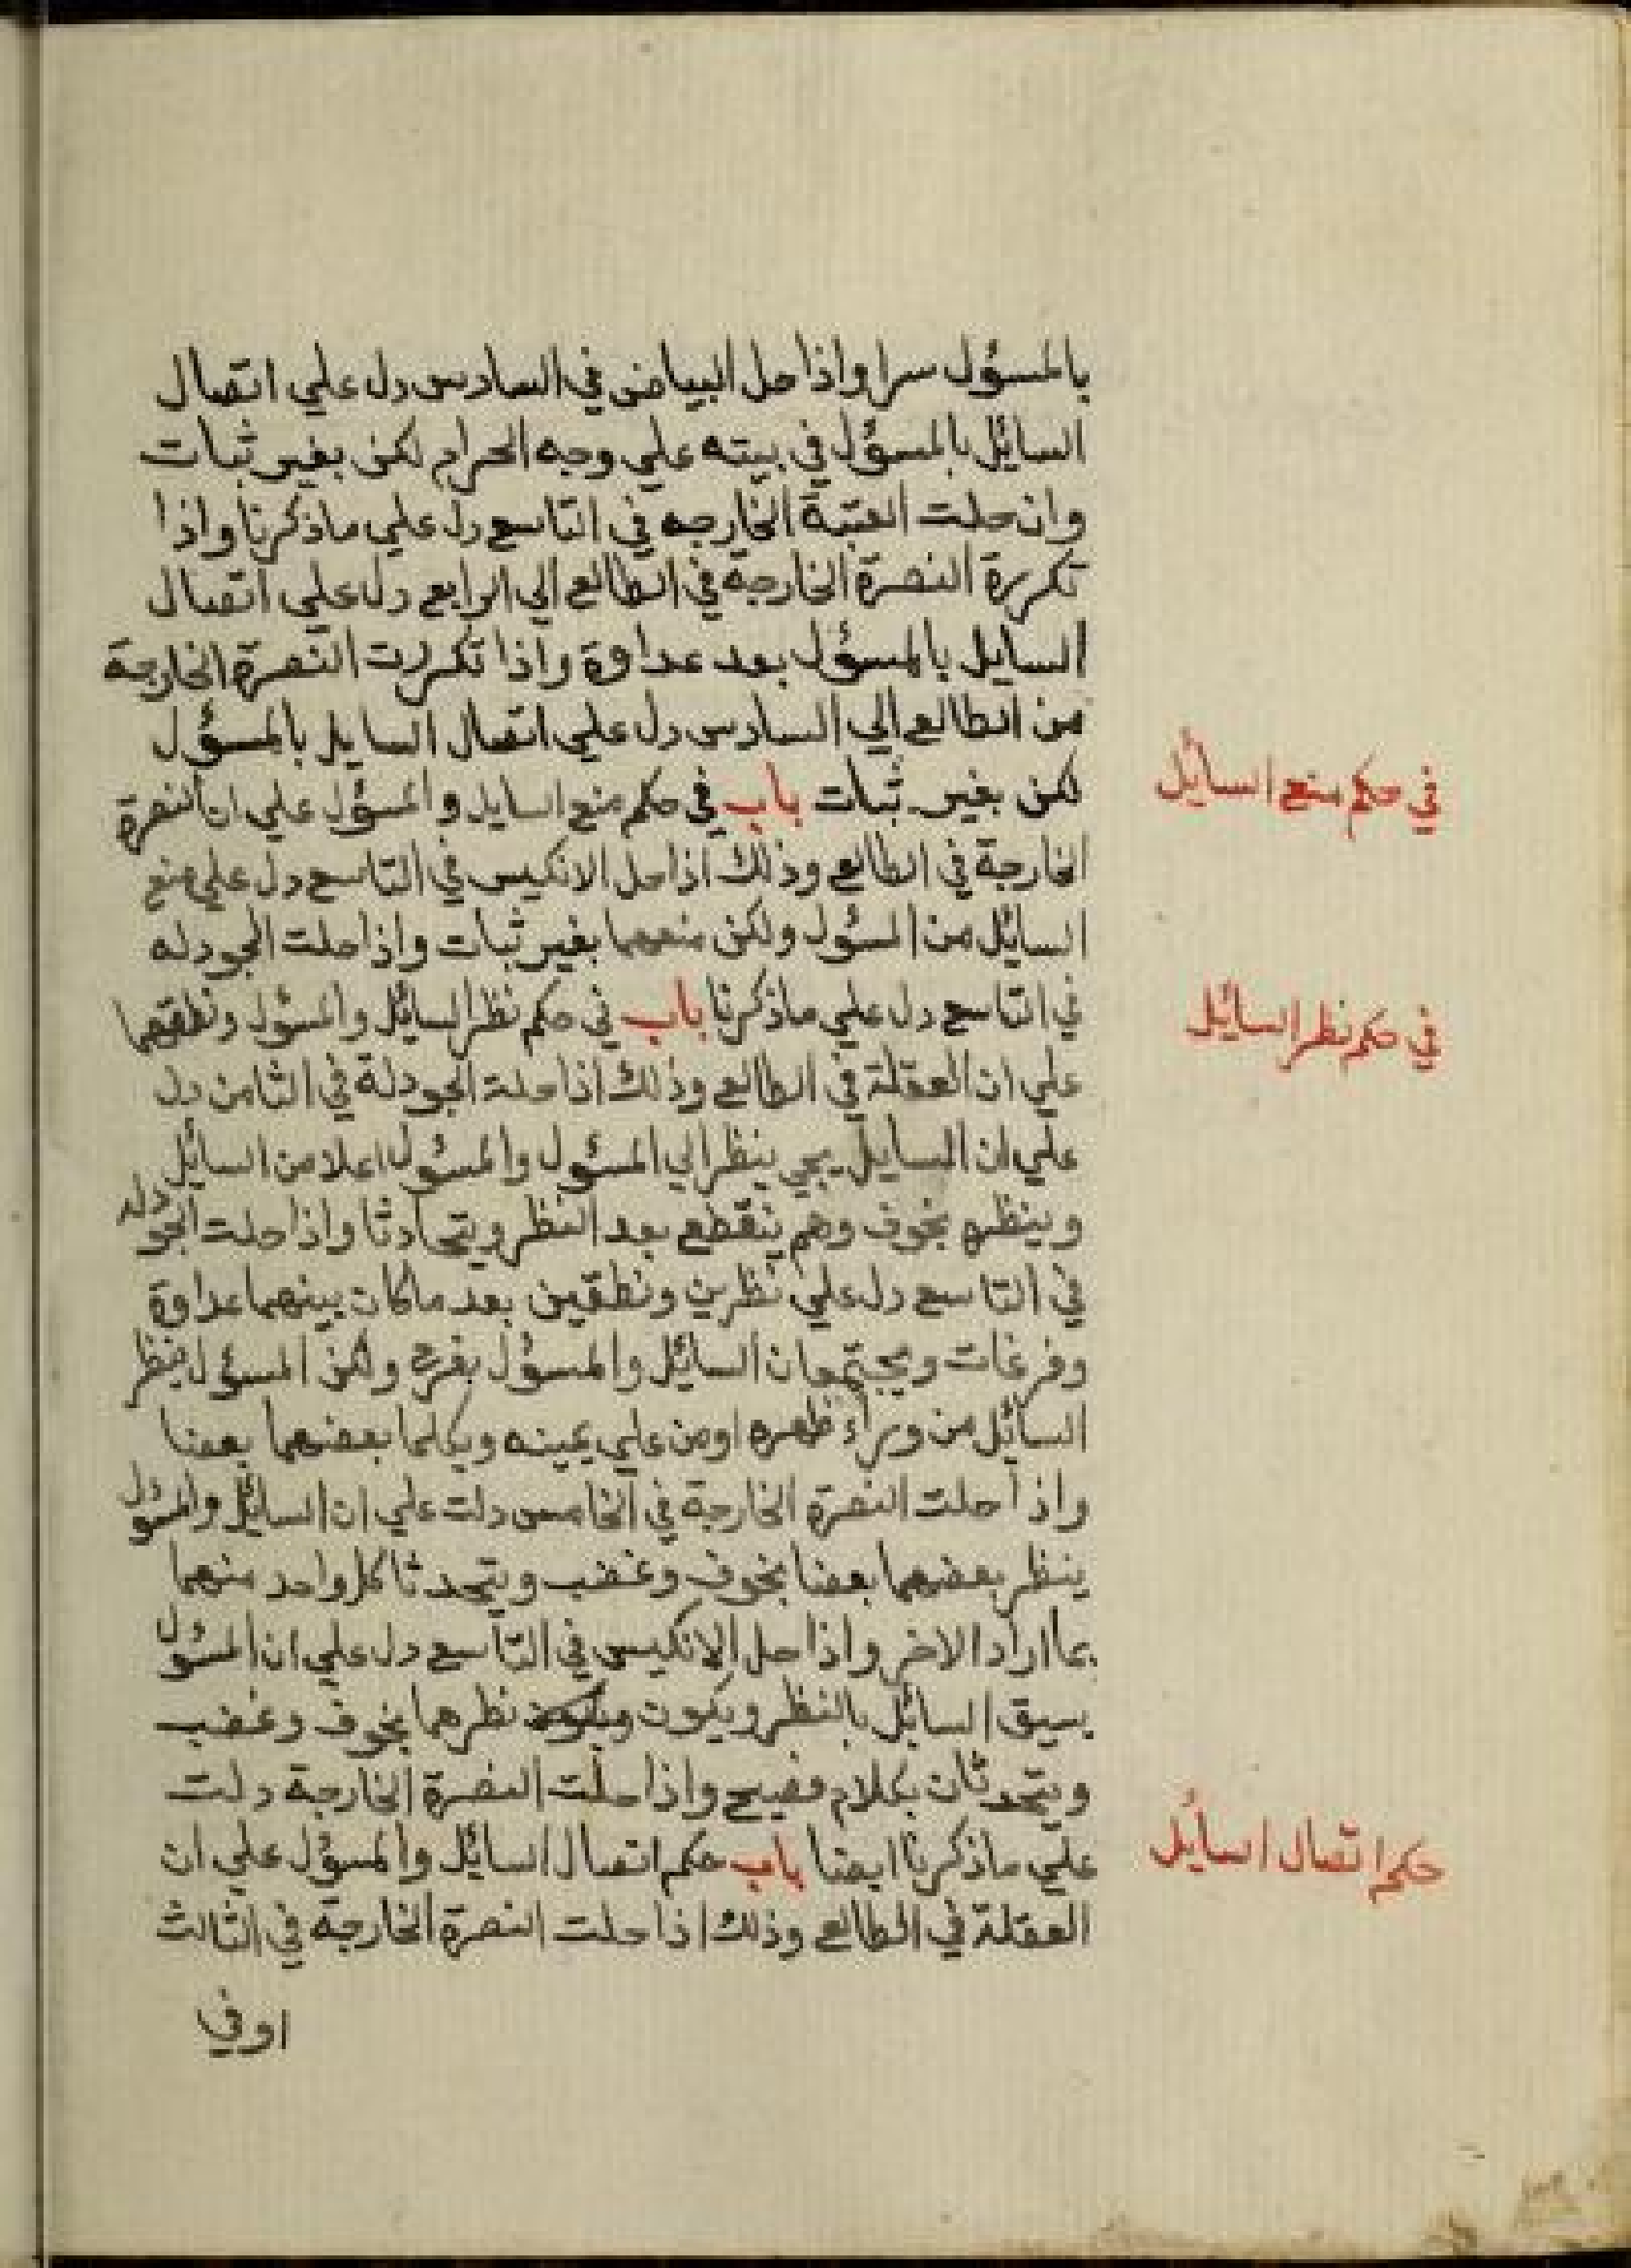 بالمسؤل سرا واذا حل البياض في السادس دل علي اتصال
السائل بالمسؤل في بيته علي وجه الحرام لكن بغير ثبات
وان حلت العتبة الخارجه في التاسع دل علي ماذكرنا واذا
تكررة النصرة الخارجة في الطالع الي الرابع دل علي اتصال
السايل بالمسؤل بعد عداوة واذا تكررت النصرة الخارجة
من الطالع الي السادس دل علي اتصال السايل بالمسؤل
لكن بغير ثبات باب في حكم منع السايل والمسؤل علي ان النصرة
في حكم منع السائل
الخارجة في الطالع وذلك اذا حل الانكيس في التاسع دل علي منع
السائل من المسؤل ولكن منعهما بغير ثبات واذا حلت الجودله
في التاسع دل علي ماذكرنا باب في حكم نظر السائل والمسؤل ونطقهما
في حكم نظر السائل
علي ان العقلة في الطالع وذلك اذا حلت الجودلة في الثامن دل
علي ان السايل يجي ينظر الي المسؤل والمسؤل اعلا من السائل
وينظره بخوف وهم ينقطع بعد النظر ويتحادثا واذا حلت الجودلة
في التاسع دل علي نظرين ونطقين بعد ماكان بينهما عداوة
وفرغات ويجتمعان السائل والمسؤل بفرح ولكن المسؤل ينظر
السائل من وراء ظهره اومن علي يمينه ويكلما بعضهما بعضا
واذا حلت النصرة الخارجة في الخامس دلت علي ان السائل والمسؤل
ينظر بعضهما بعضا بخوف وغضب ويتحدثا كل واحد منهما
بما اراد الاخر واذا حل الانكيس في التاسع دل علي ان المسؤل
يسبق السائل بالنظر ويكون نظرهما بخوف وغضب
ويتحدثان بكلام فصيح واذا حلت النصرة الخارجة دلت
علي ماذكرنا ايضا باب حكم اتصال السائل والمسؤل علي ان
حكم اتصال السايل
العقلة في الطالع وذلك اذا حلت النصرة الخارجة في الثالث
اوفي